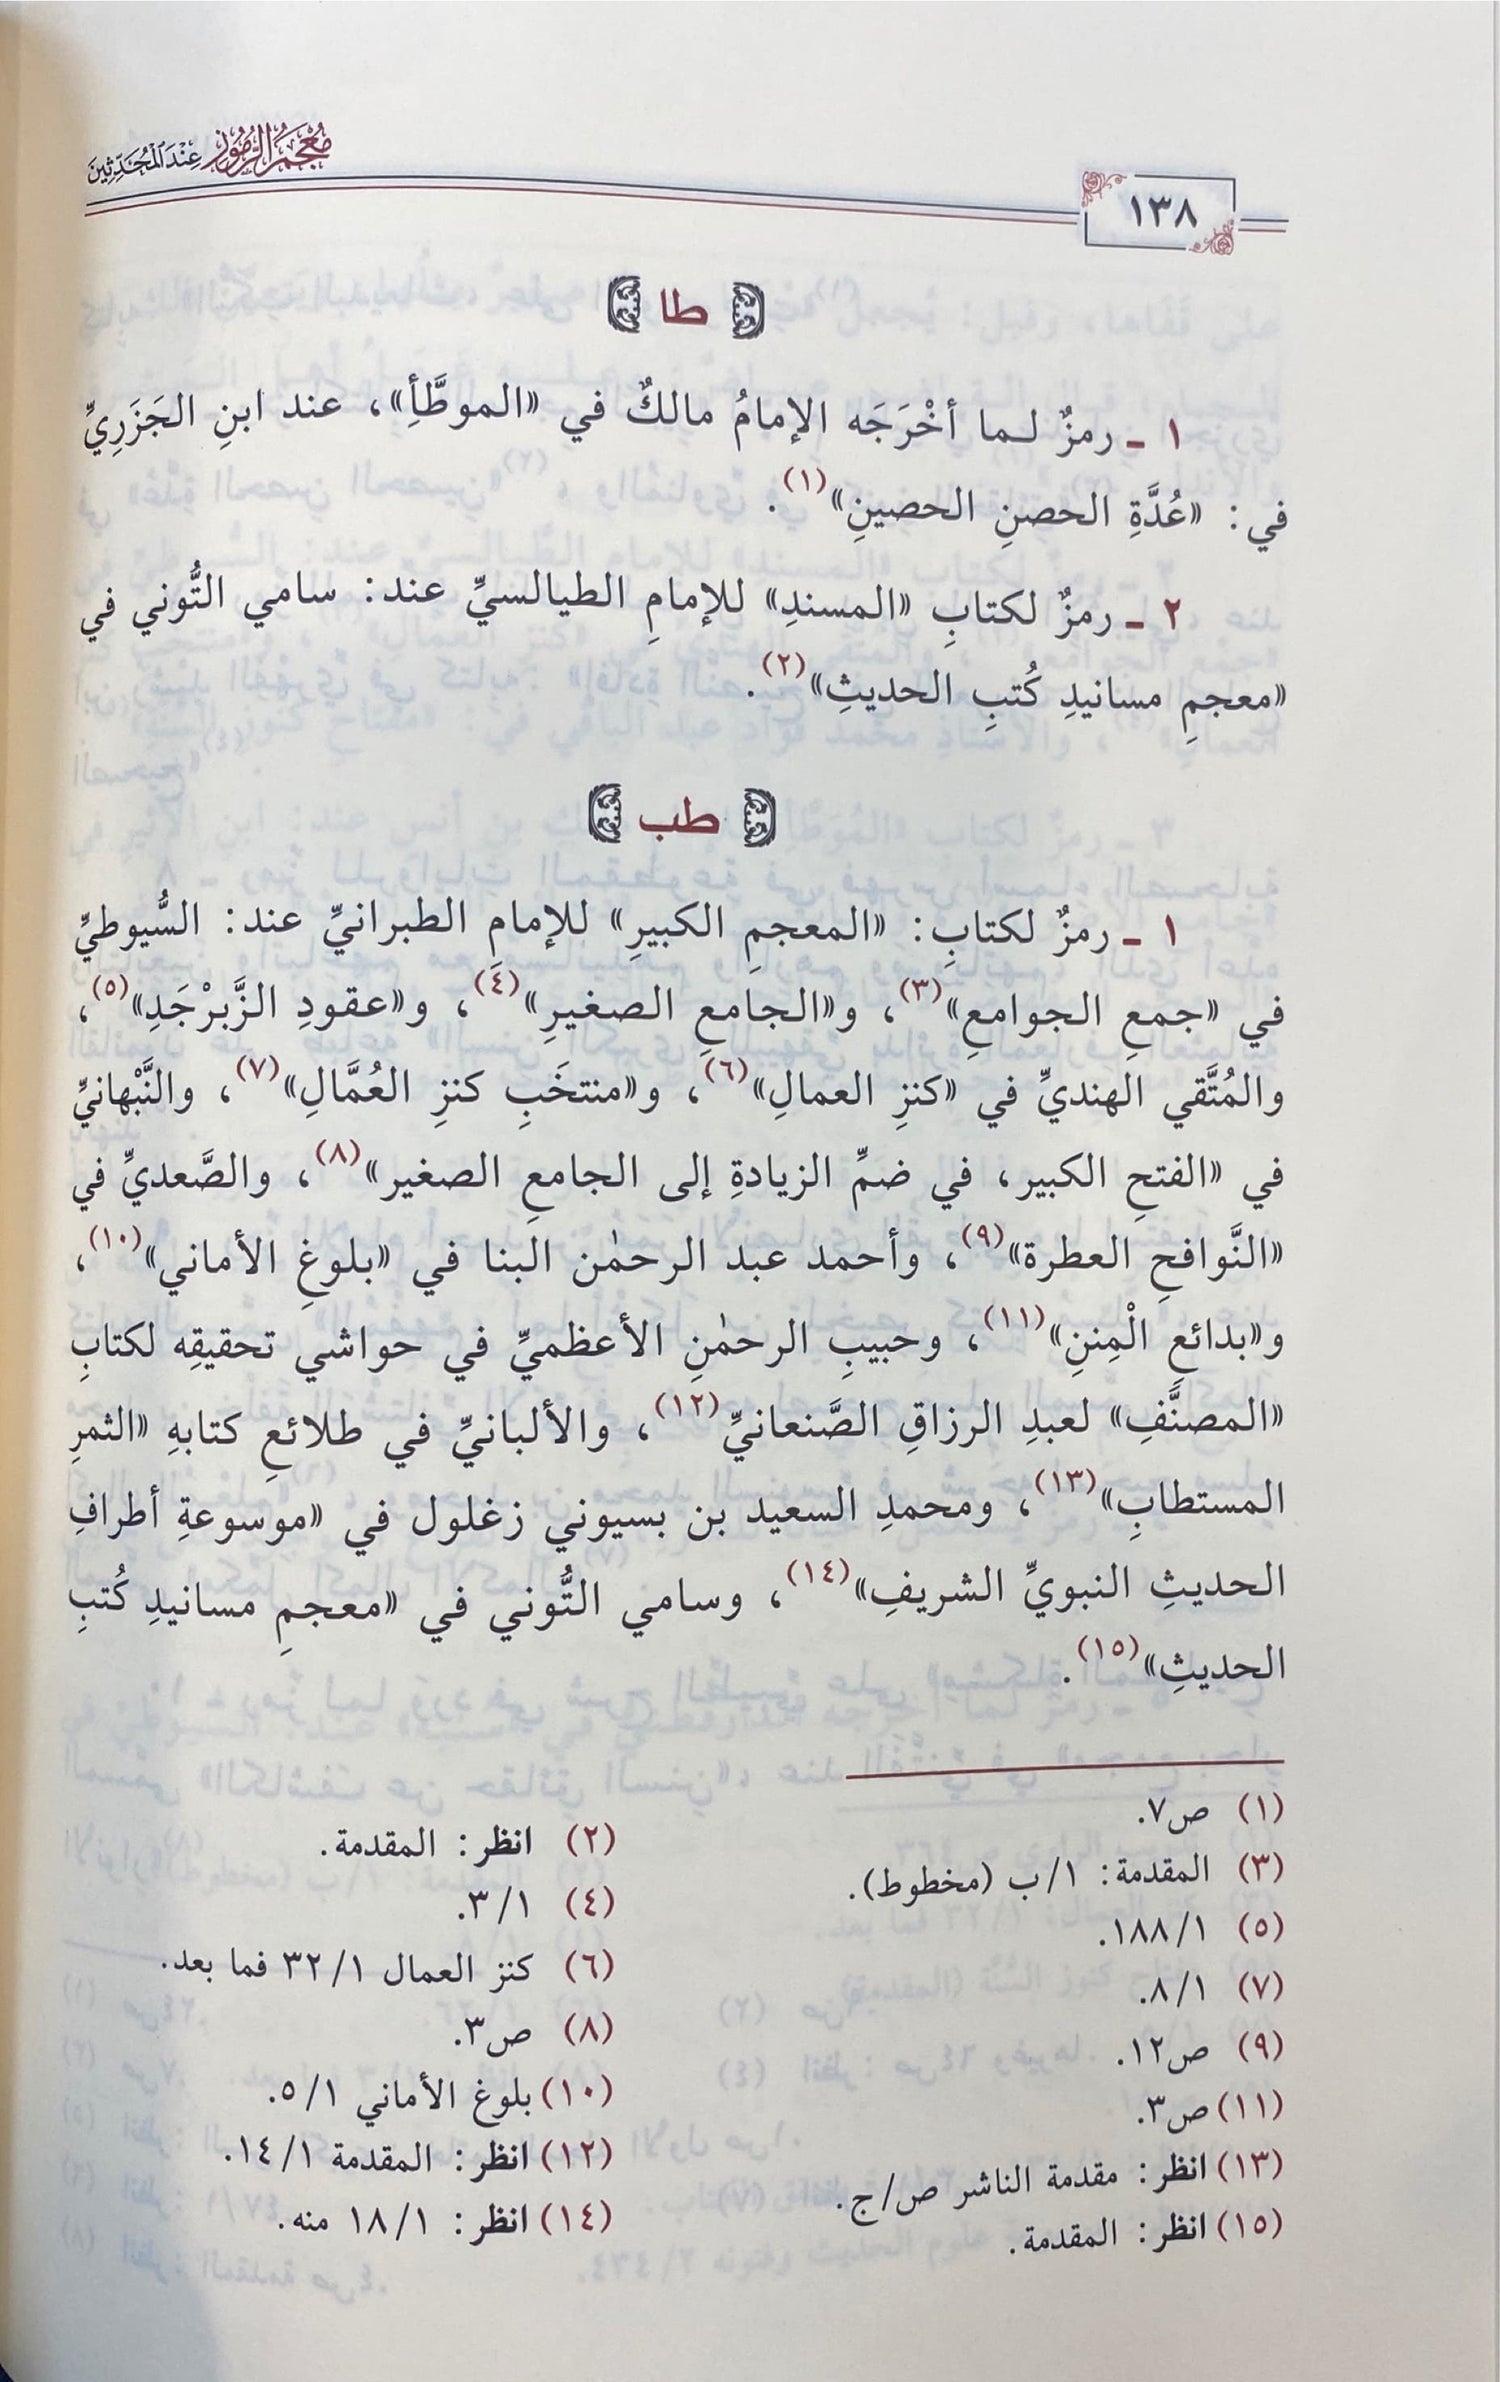 معجم الرموز عند المحدثين
١٣٨
طا
١ ـ رمزٌ لـما أخْرَجَه الإمامُ مالكٌ في «الموطَّأِ»، عند ابنِ الجَزَرِيِّ
في: «عُدَّةِ الحصنِ الحصينِ»(١).
٢ ـ رمزٌ لكتابِ «المسندِ» للإمامِ الطيالسيِّ عند: سامي التُّوني في
«معجمِ مسانيدِ كُتبِ الحديثِ»(٢).
طب
١ ـ رمزٌ لكتابِ: «المعجمِ الكبيرِ» للإمامِ الطبرانيِّ عند: السُّيوطيِّ
في «جمعِ الجوامعِ»(٣)، و«الجامعِ الصغيرِ»(٤)، و«عقودِ الزَّبرْجَدِ»(٥)،
والمُتَّقي الهنديِّ في «كنزِ العمالِ»(٦)، و«منتخَبِ كنزِ العُمَّالِ»(٧)، والنَّبْهانيِّ
في «الفتحِ الكبير، في ضمِّ الزيادةِ إلى الجامعِ الصغير»(٨)، والصَّعديِّ في
«النَّوافحِ العطرة»(٩)، وأحمد عبد الرحمٰن البنا في «بلوغِ الأماني»(١٠)،
و«بدائعِ الْمِننِ»(١١)، وحبيبِ الرحمٰنِ الأعظميِّ في حواشي تحقيقِه لكتابِ
«المصنَّفِ» لعبدِ الرزاقِ الصَّنعانيِّ(١٢)، والألبانيِّ في طلائعِ كتابهِ «الثمرِ
المستطابِ»(١٣)، ومحمدِ السعيد بن بسيوني زغلول في «موسوعةِ أطرافِ
الحديثِ النبويِّ الشريفِ»(١٤)، وسامي التُّوني في «معجمِ مسانيدِ كُتبِ
الحديثِ»(١٥).
(١) ص٧.
(٢) انظر: المقدمة.
(٣) المقدمة: ١/ب (مخطوط).
(٤) ٣/١.
(٥) ١٨٨/١.
(٦) كنز العمال ٣٢/١ فما بعد.
(٧) ٨/١.
(٨) ص٣.
(٩) ص١٢.
(١٠) بلوغ الأماني ٥/١.
(١١) ص٣.
(١٢) انظر: المقدمة ١٤/١.
(١٣) انظر: مقدمة الناشر ص/ج.
(١٤) انظر: ١٨/١ منه.
(١٥) انظر: المقدمة.